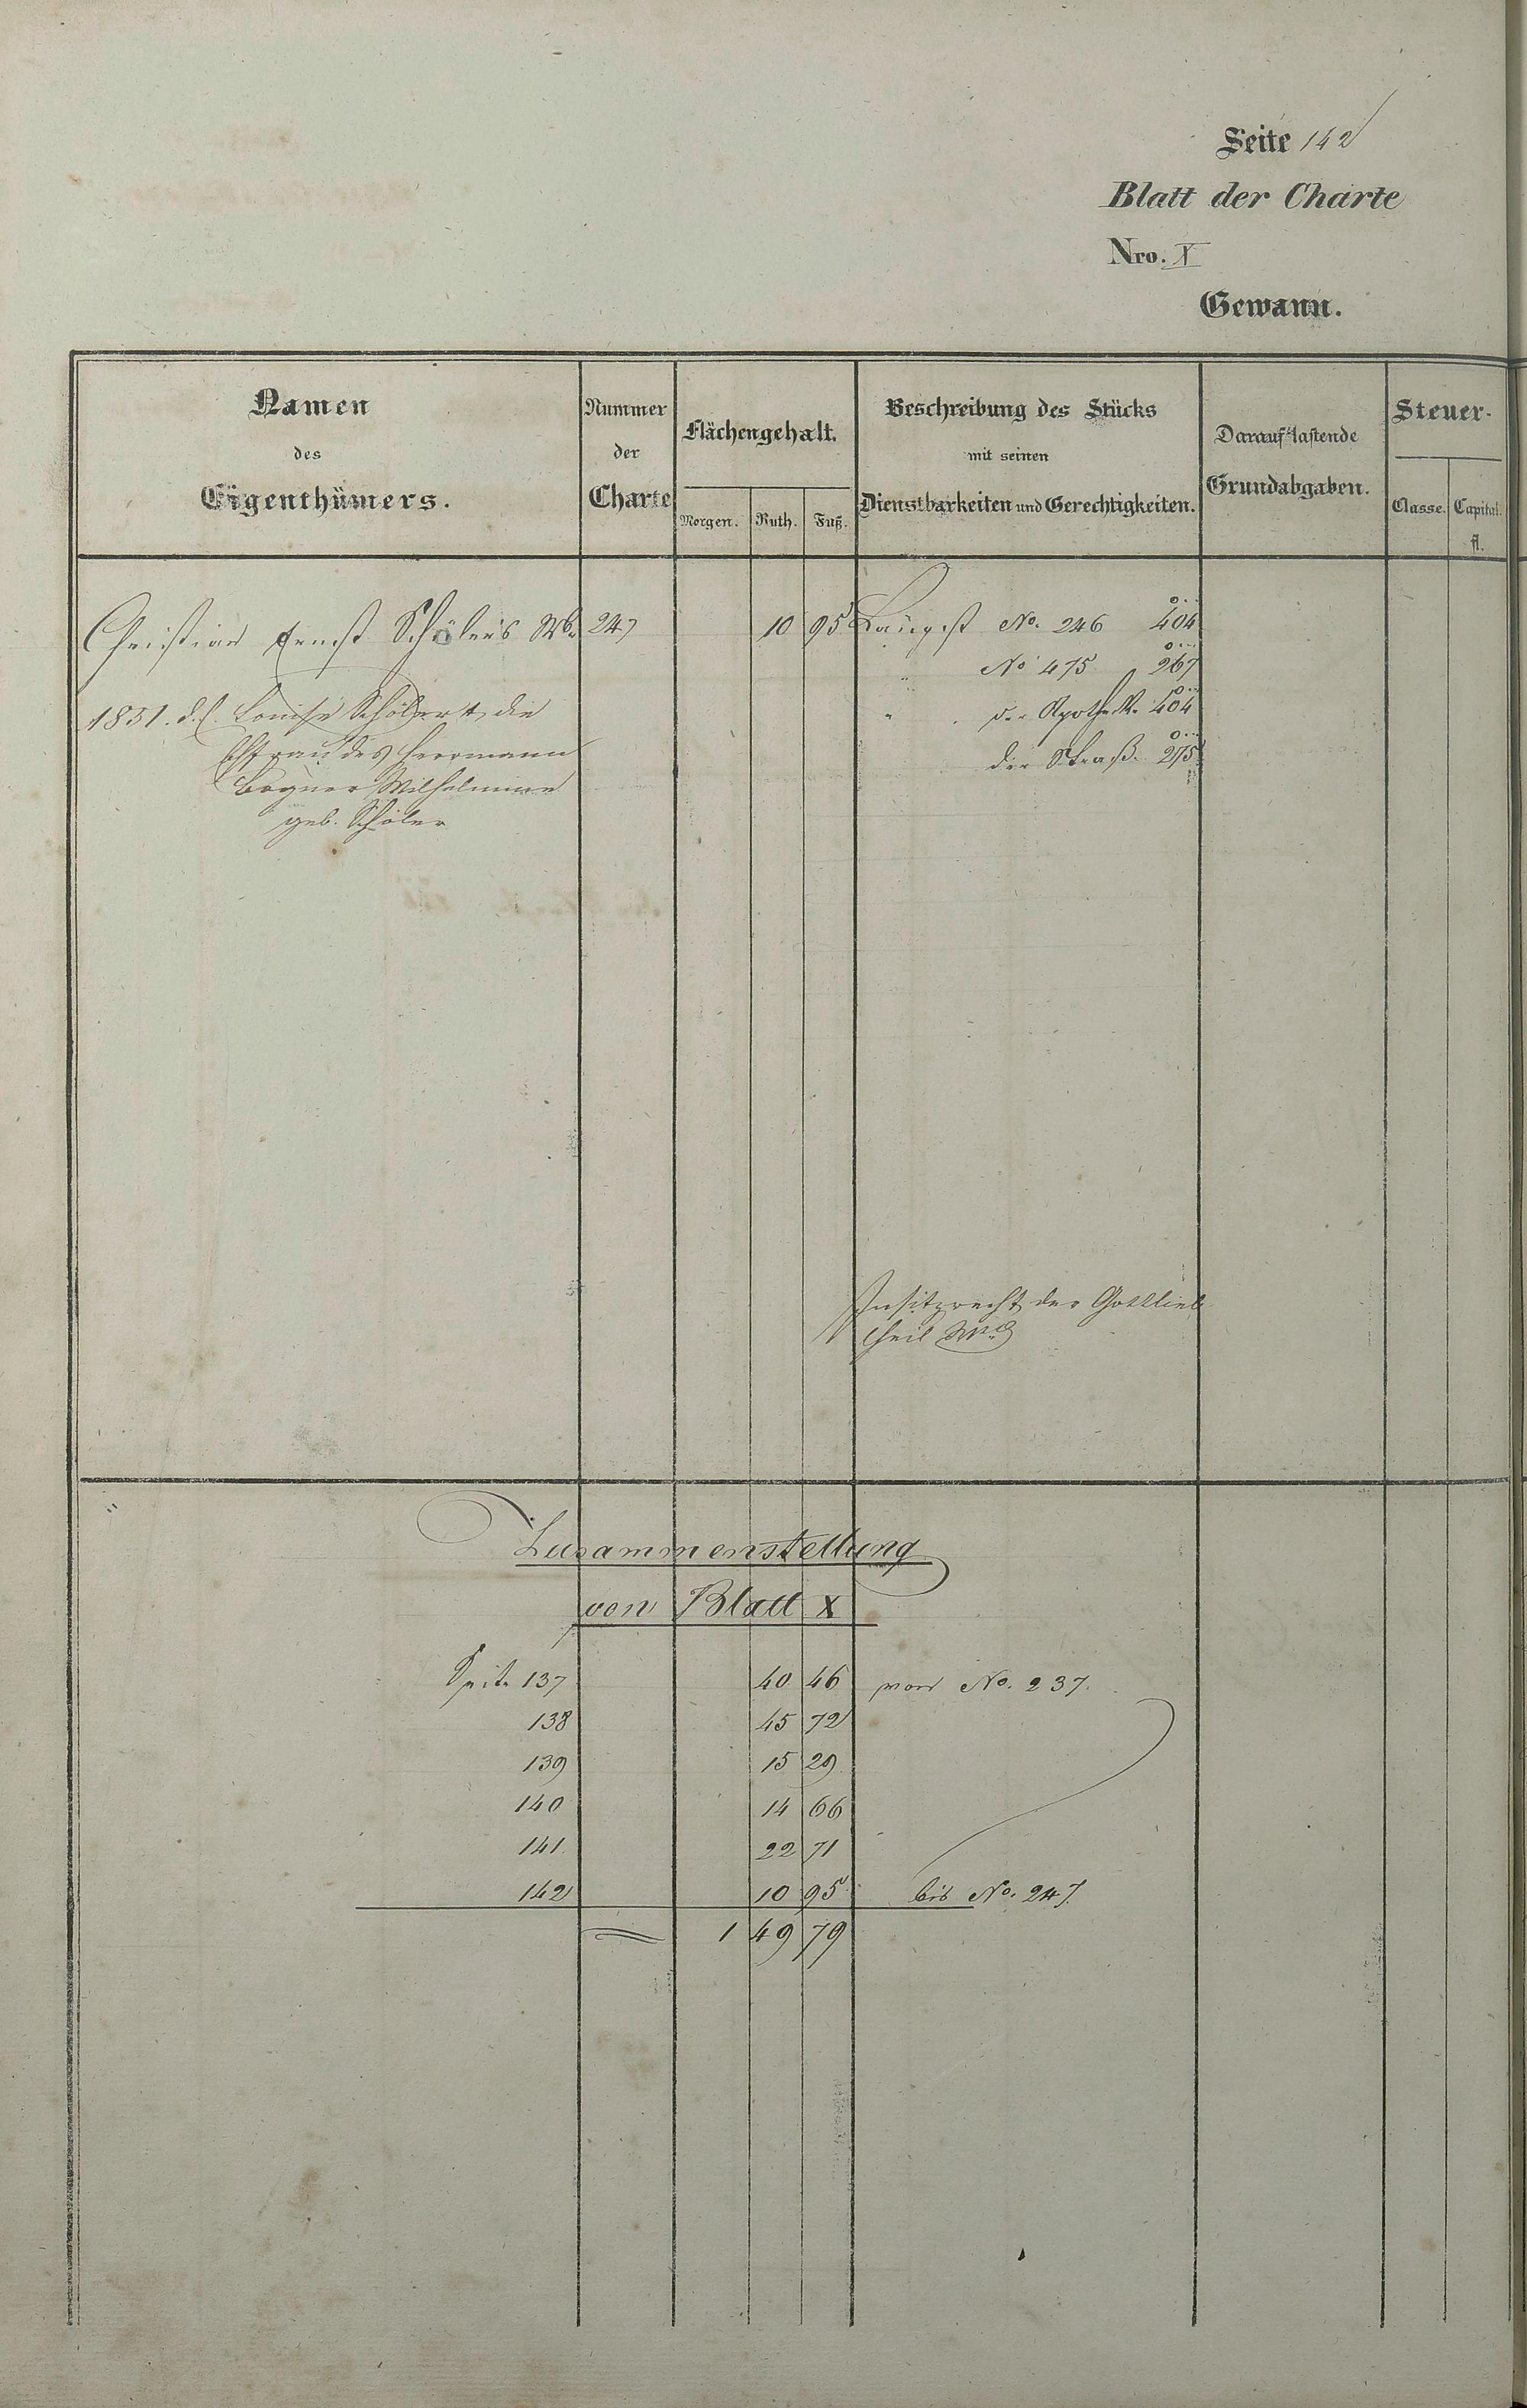 Seite 142
Blatt der Charte
Nro. X
Gewann.
Namen des Eigenthümers.
Nummer der Charte
Flächengehalt.
Morgen. Ruth. Fuß.
Beschreibung des Stücks mit seinen Dienstbarkeiten und Gerechtigkeiten.
Darauf lastende Grundabgaben.
Steuer-
Classe. Capital. fl.
Christian Ernst Schölers Wb. 247 10 95 Laengst No. 246 404
" No 475 267
" der Apotheke 404
der Straß. 275
1851. d. l. Louise Schölert, die
Ehfrau des Herrmann
Wilhelmine
geb. Schöler
Insitzrecht der Gottlieb
Theil
Zusammenstellung
von Blatt X
Seite 137 40 46 von No. 237.
138 45 72
139 15 29
140 14 66
141. 22 71
142 10 95 bis No. 247.
1 49 79